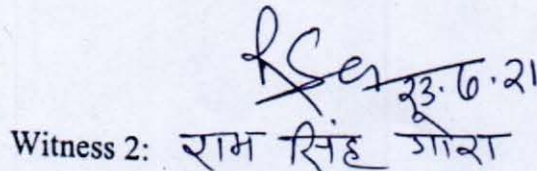 २३.6.२1
Witness 2: राम सिंह गोरा